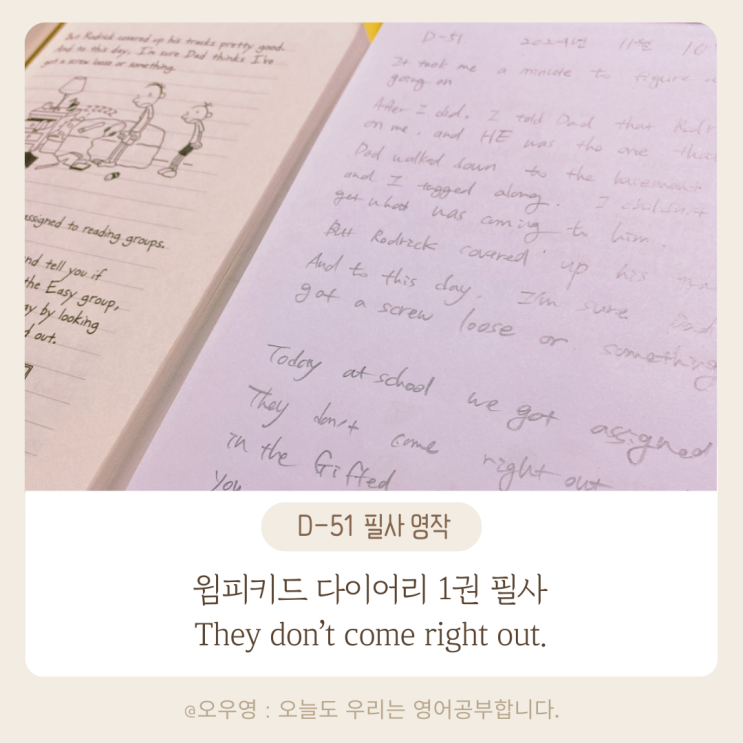 But Rodrick covered up his tracks pretty good.
And to this day, I'm sure Dad thinks I've
got a screw loose or something.
assigned to reading groups.
nd tell you if
the Easy group,
by looking
out.
D-51 2024년 11월 10
It took me a minute to figure
going on
After I did, I told Dad that Rodr
on me, and HE was the one that
Dad walked down to the basement
and I tagged along. I couldn't
get what was coming to him.
But Rodrick covered up his
And to this day, I'm sure Dad
got a screw loose or something
Today at school we got assigned
They don't come right out
in the Gifted
You
D-51 필사 영작
윔피키드 다이어리 1권 필사
They don't come right out.
@오우영 : 오늘도 우리는 영어공부합니다.